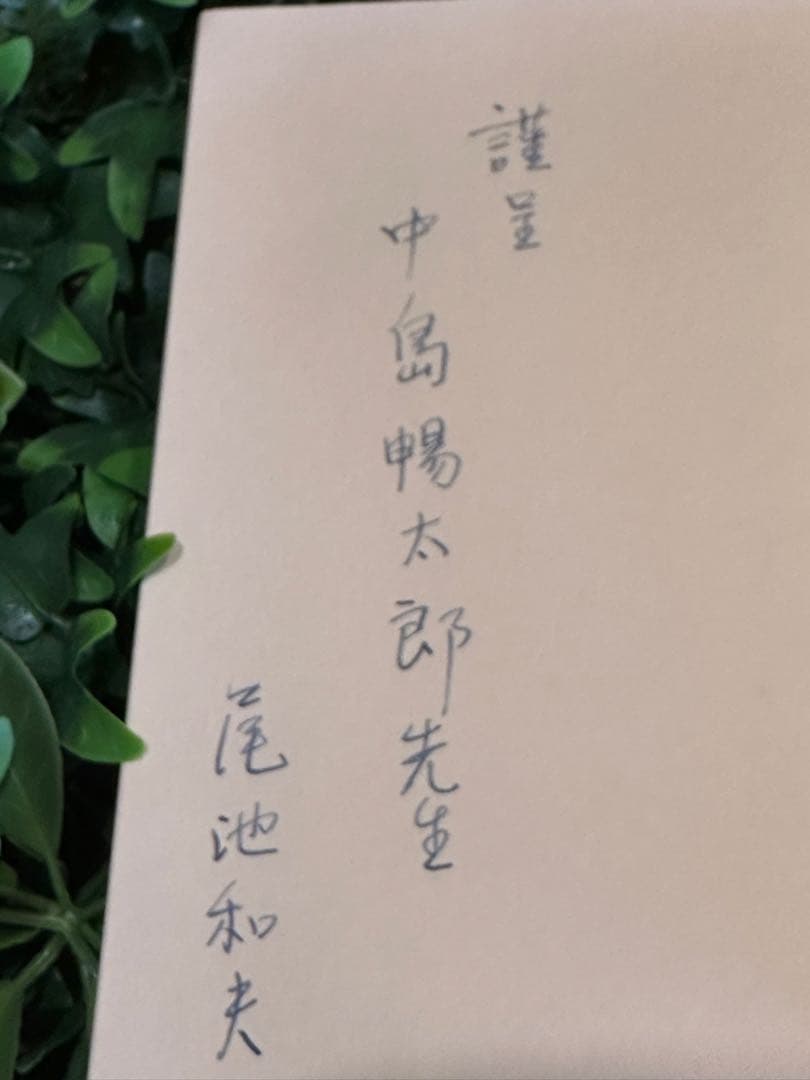 謹呈
中島暢太郎先生
尾池和夫